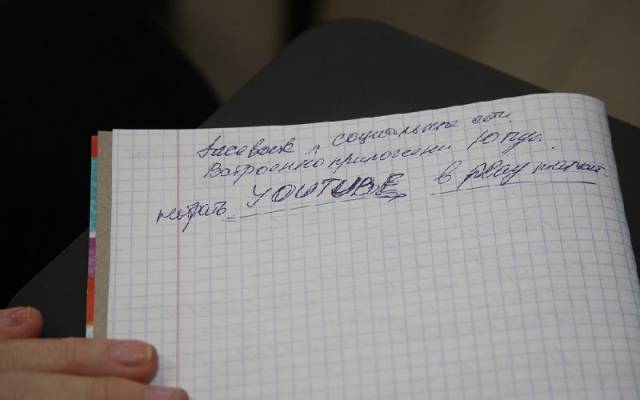 facebook л социальные сети
Встроенно приложени ютуб.
набрать YOUTUBE в play маркет